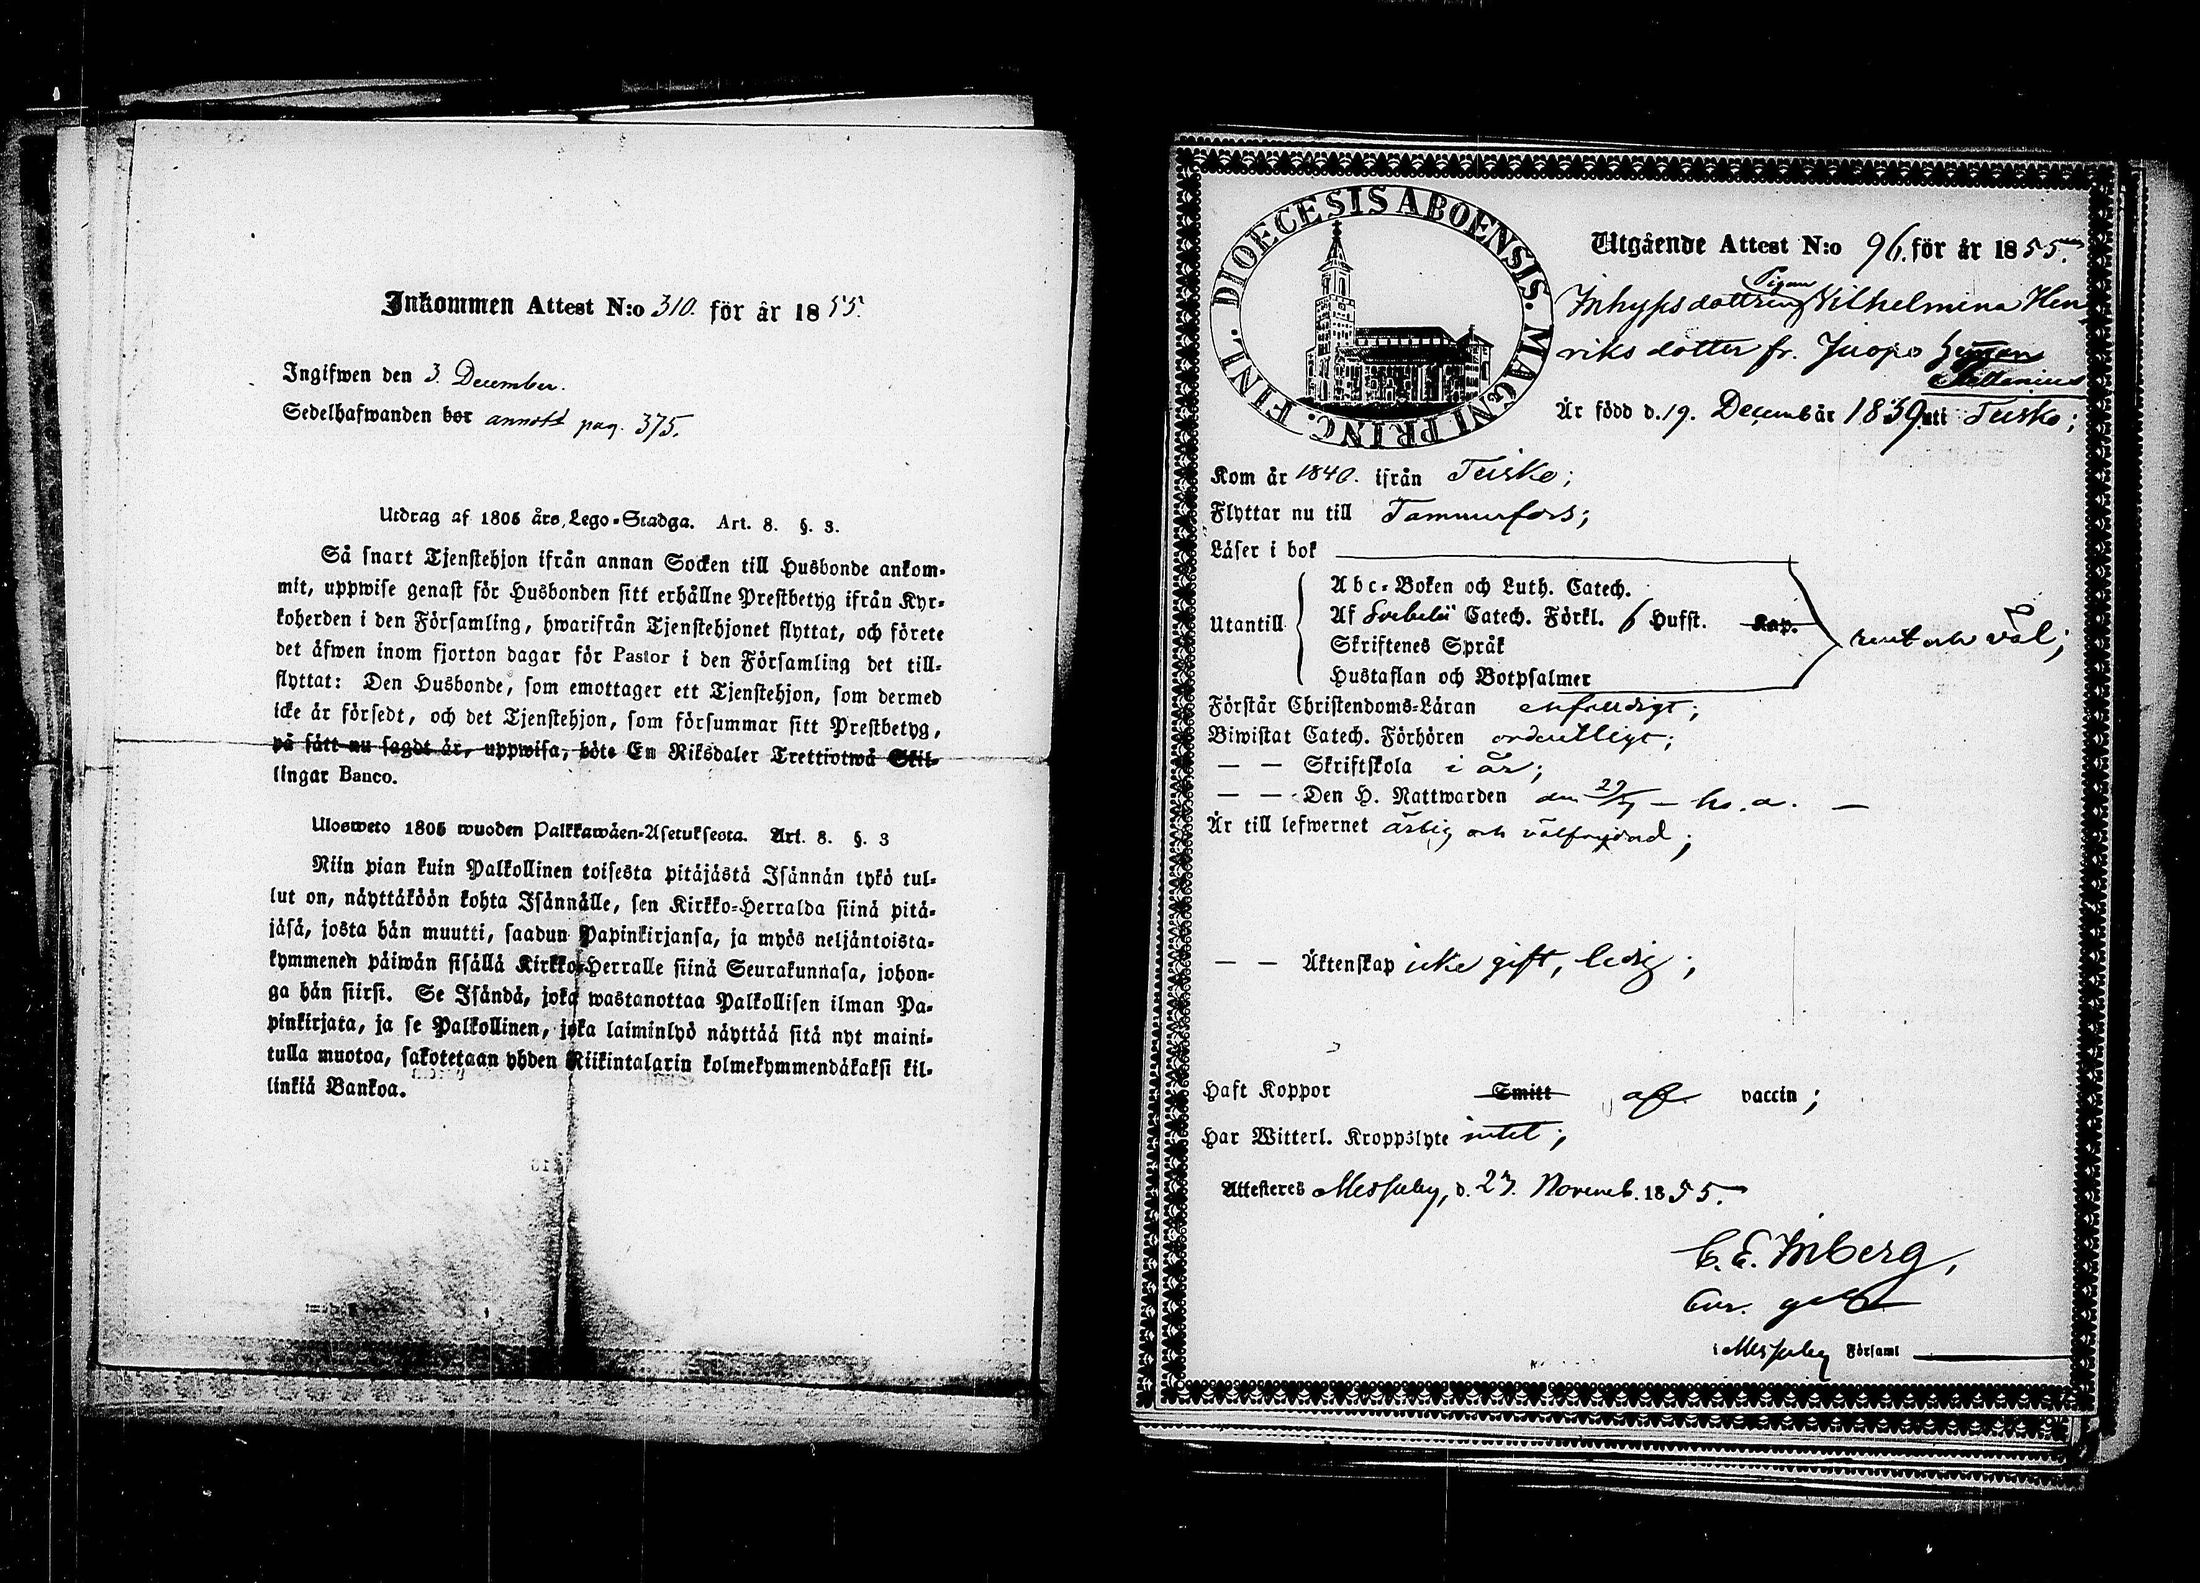 Inkommen Attest N:o 310. för år 1855.
Ingifwen den 3. December.
Sedelhafwanden bor annotd pag. 375.
Utdrag af 1805 års Lego-Stadga. Art. 8. §. 3.
Så snart Tjenstehjon ifrån annan Socken till Husbonde ankom-
mit, uppwise genast för Husbonden sitt erhållne Prestbetyg ifrån Kyr-
koherden i den Församling, hwarifrån Tjenstehjonet flyttat, och förete
det äfwen inom fjorton dagar för Pastor i den Församling det till-
flyttat: Den Husbonde, som emottager ett Tjenstehjon, som dermed
icke är försedt, och det Tjenstehjon, som försummar sitt Prestbetyg,
på sätt nu sagdt är, uppwisa, böte En Riksdaler Trettiotwå Skil-
lingar Banco.
Ulosweto 1805 wuoden Palkkawäen-Asetuksesta. Art. 8. §. 3
Niin pian kuin Palkollinen toisesta pitäjästä Isännän tykö tul-
lut on, näyttäköön kohta Isännälle, sen Kirkko-Herralda siinä pitä-
jäsä, josta hän muutti, saadun Papinkirjansa, ja myös neljäntoista-
kymmenen päiwän sisällä Kirkko-Herralle siinä Seurakunnasa, johon-
ga hän siirsi. Se Isändä, joka wastanottaa Palkollisen ilman Pa-
pinkirjata, ja se Palkollinen, joka laiminlyö näyttää sitä nyt maini-
tulla muotoa, sakotetaan yhden Riikintalarin kolmekymmendäkaksi kil-
linkiä Bankoa.
DIOECESIS ABOENSIS. MAGNI PRINC. FINL.
Utgående Attest N:o 96. för år 1855.
Pigan
Inhyssdottren Vilhelmina Hen
riksdotter fr. Juopo
Är född d. 19. Decemb år 1839 uti Teisko;
Kom år 1840. ifrån Teisko;
Flyttar nu till Tammerfors;
Läser i bok
Utantill
Abc-Boken och Luth. Catech.
Af Svebelii Catech. Förkl. 6 Hufst. Kap.
Skriftenes Språk
Hustaflan och Botpsalmer
rent och väl;
Förstår Christendoms-Läran enfaldigt;
Biwistat Catech. Förhören ordentligt;
— — Skriftskola i år;
— — Den H. Nattwarden den 29/7 — hs. a. —
Är till lefwernet ärlig och välfrejdad;
— — Äktenskap icke gift, ledig;
Haft Koppor Smitt af vaccin;
Har Witterl. Kroppslyte intet;
Attesteres Messuby, d. 27. Novemb. 1855.
C. E. Inberg,
Messuby Församl